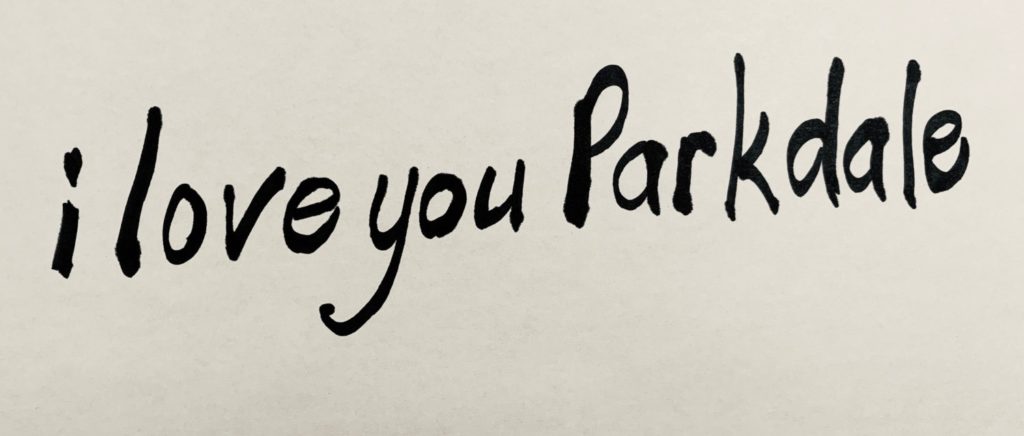 i love you Parkdale